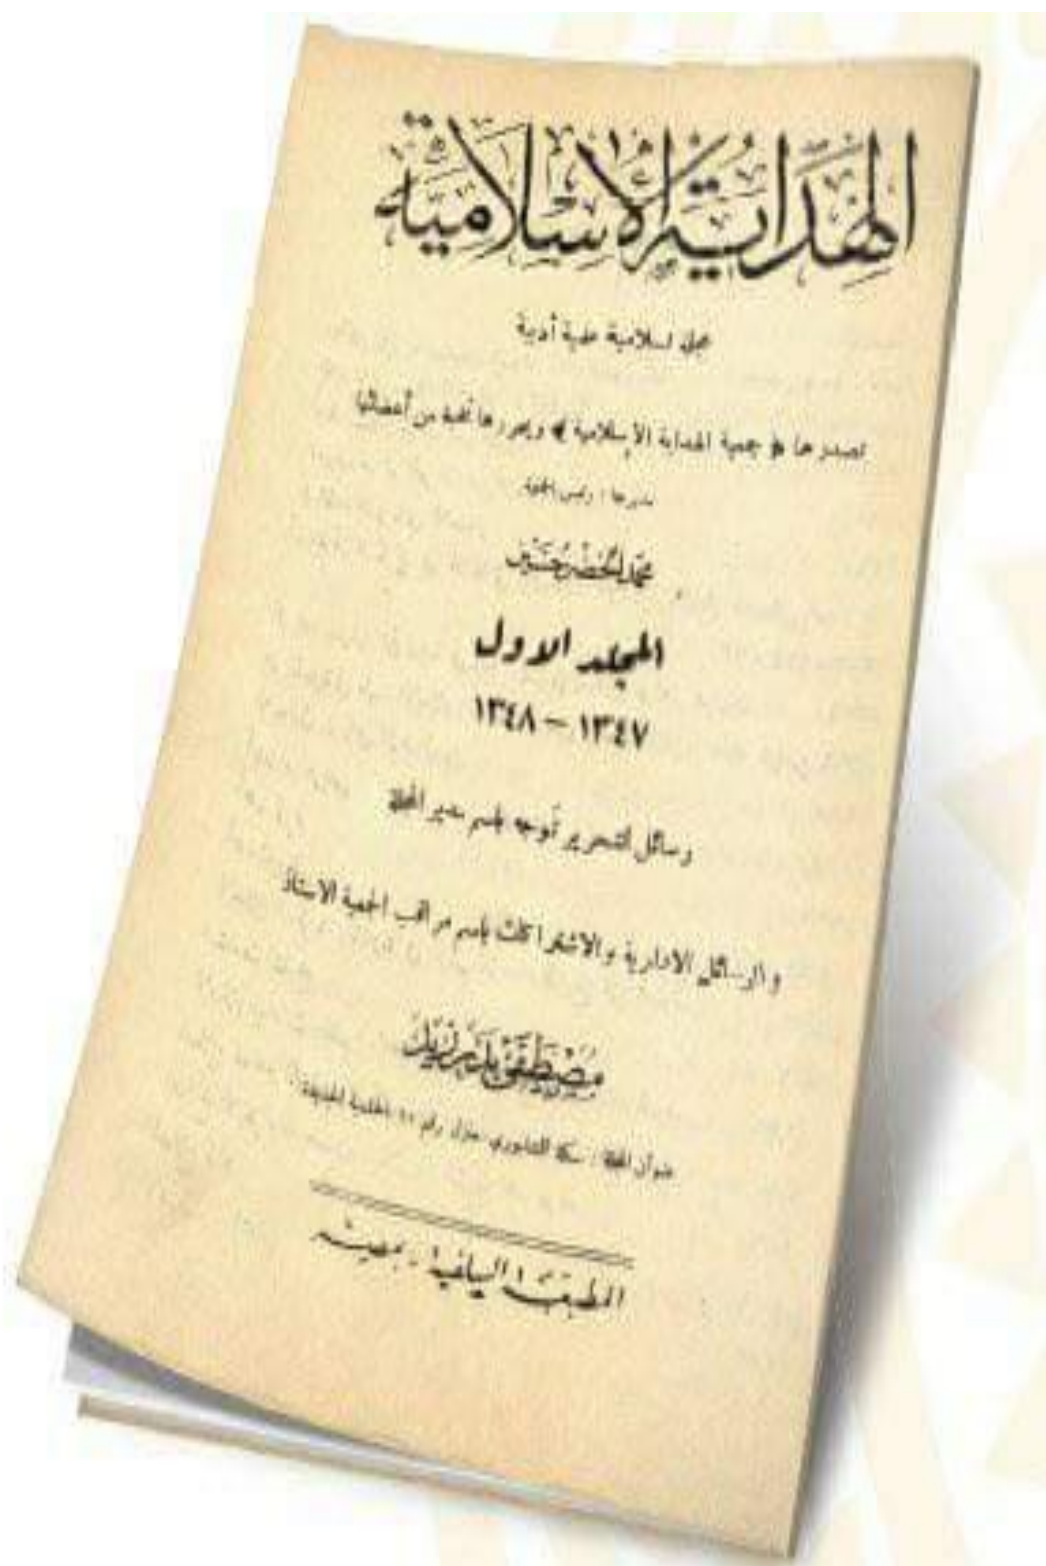 الهداية الإسلامية
مجلة إسلامية علمية أدبية
تصدرها « جمعية الهداية الإسلامية » ويحررها نخبة من أعضائها
مديرها : رئيس الجمعية
محمد الخضر حسين
المجلد الاول
١٣٤٧ – ١٣٤٨
رسائل التحرير تُوجه باسم مدير المجلة
والرسائل الادارية والاشتراكات باسم مراقب الجمعية الاستاذ
مصطفى
عنوان المجلة : سكة منزل رقم بالحلمية الجديدة
المطبعة السلفية - بمصر